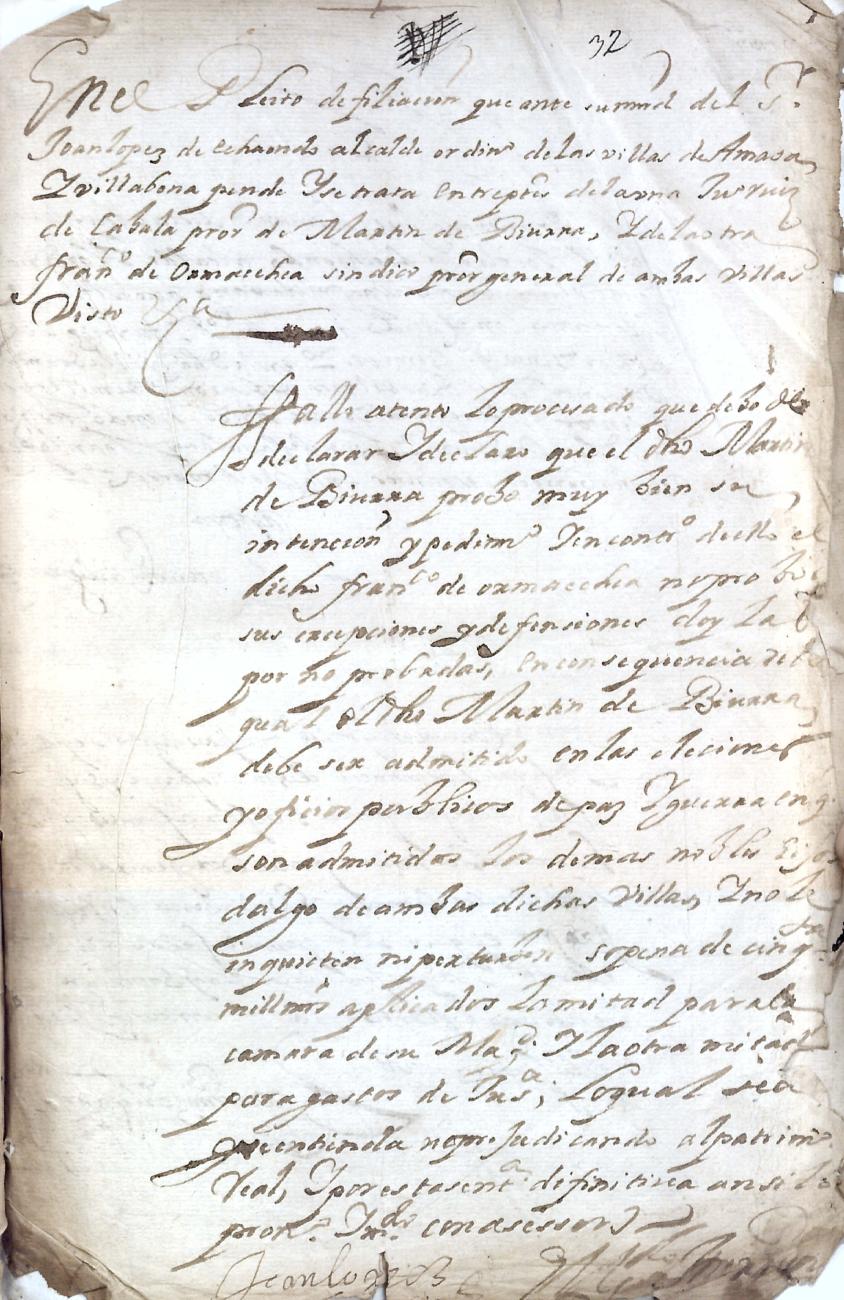 32
En el Pleito de filiacion que ante su md del Sr
Joan lopez de echaondo alcalde ordino de las villas de Amasa
Y villabona pende Y se trata entre ptes de la una Ju ruiz
de Cabala pror de Martin de Biurra, Y de la otra
franco de ormaechea sindico pror general de ambas villas
Visto &a
Fallo atento lo procesado que debo de
declarar Y declaro que el dho Martin
de Biurra probo muy bien su
intencion y pedimo Y en contro dello el
dicho franco de ormaechea no probo
sus excepciones y defensiones doy la
por no probadas, en consequencia de lo
qual el dho Martin de Biurra
debe ser admitido en las eleciones
y oficios publicos de paz Y guerra en q
son admitidos los demas nobles hijos
dalgo de ambas dichas Villas, Y no le
inquieten ni perturben so pena de cinqta
mill mrs aplicados la mitad para la
camara de su Magd Y la otra mitad
para gastos de Jusa, Lo qual sea
y se entienda no prejudicando al patrimo
Real, Y por esta senta difinitiva ansi lo
prono Y mdo con asessor
Joan lopez